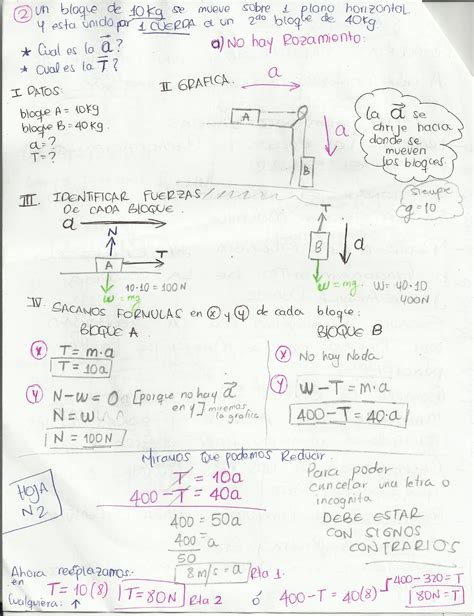 ② Un bloque de 10Kg se mueve sobre 1 plano horizontal
y esta unido por 1 CUERDA a un 2do bloque de 40Kg.
* Cual es la a?
* Cual es la T?
a) No hay Rozamiento:
I DATOS:
bloque A = 10Kg
bloque B = 40Kg.
a = ?
T = ?
II GRAFICA.
a
A
a
B
La a se
dirije hacia
donde se
mueven
los bloqes.
Siempre
g=10
III. IDENTIFICAR FUERZAS
DE CADA BLOQUE.
a
N
T
A
10·10=100N
W=mg
T
B
a
W=mg.
W=40·10
400N
IV SACAMOS FORMULAS en ⓧ y ⓨ de cada bloque:
BLOQUE A.
BLOQUE B
ⓧ T=m·a
T=10a
ⓨ N-W=0 [porque no hay a
en y] miremos
la grafica
N=W
N=100N
ⓧ No hay Nada
ⓨ W-T=m·a
400-T=40·a
Miramos que podemos Reducir.
T = 10a
400-T = 40a
400 = 50a
400 = a
50
8 m/s = a Rta 1.
Para poder
cancelar una letra o
incognita
DEBE ESTAR
CON SIGNOS
CONTRARIOS
HOJA
N2
Ahora reemplazamos.
en
Cualquiera: ↑
T=10(8)
T=80N Rta 2
ó 400-T=40(8)
400-320=T
80N=T